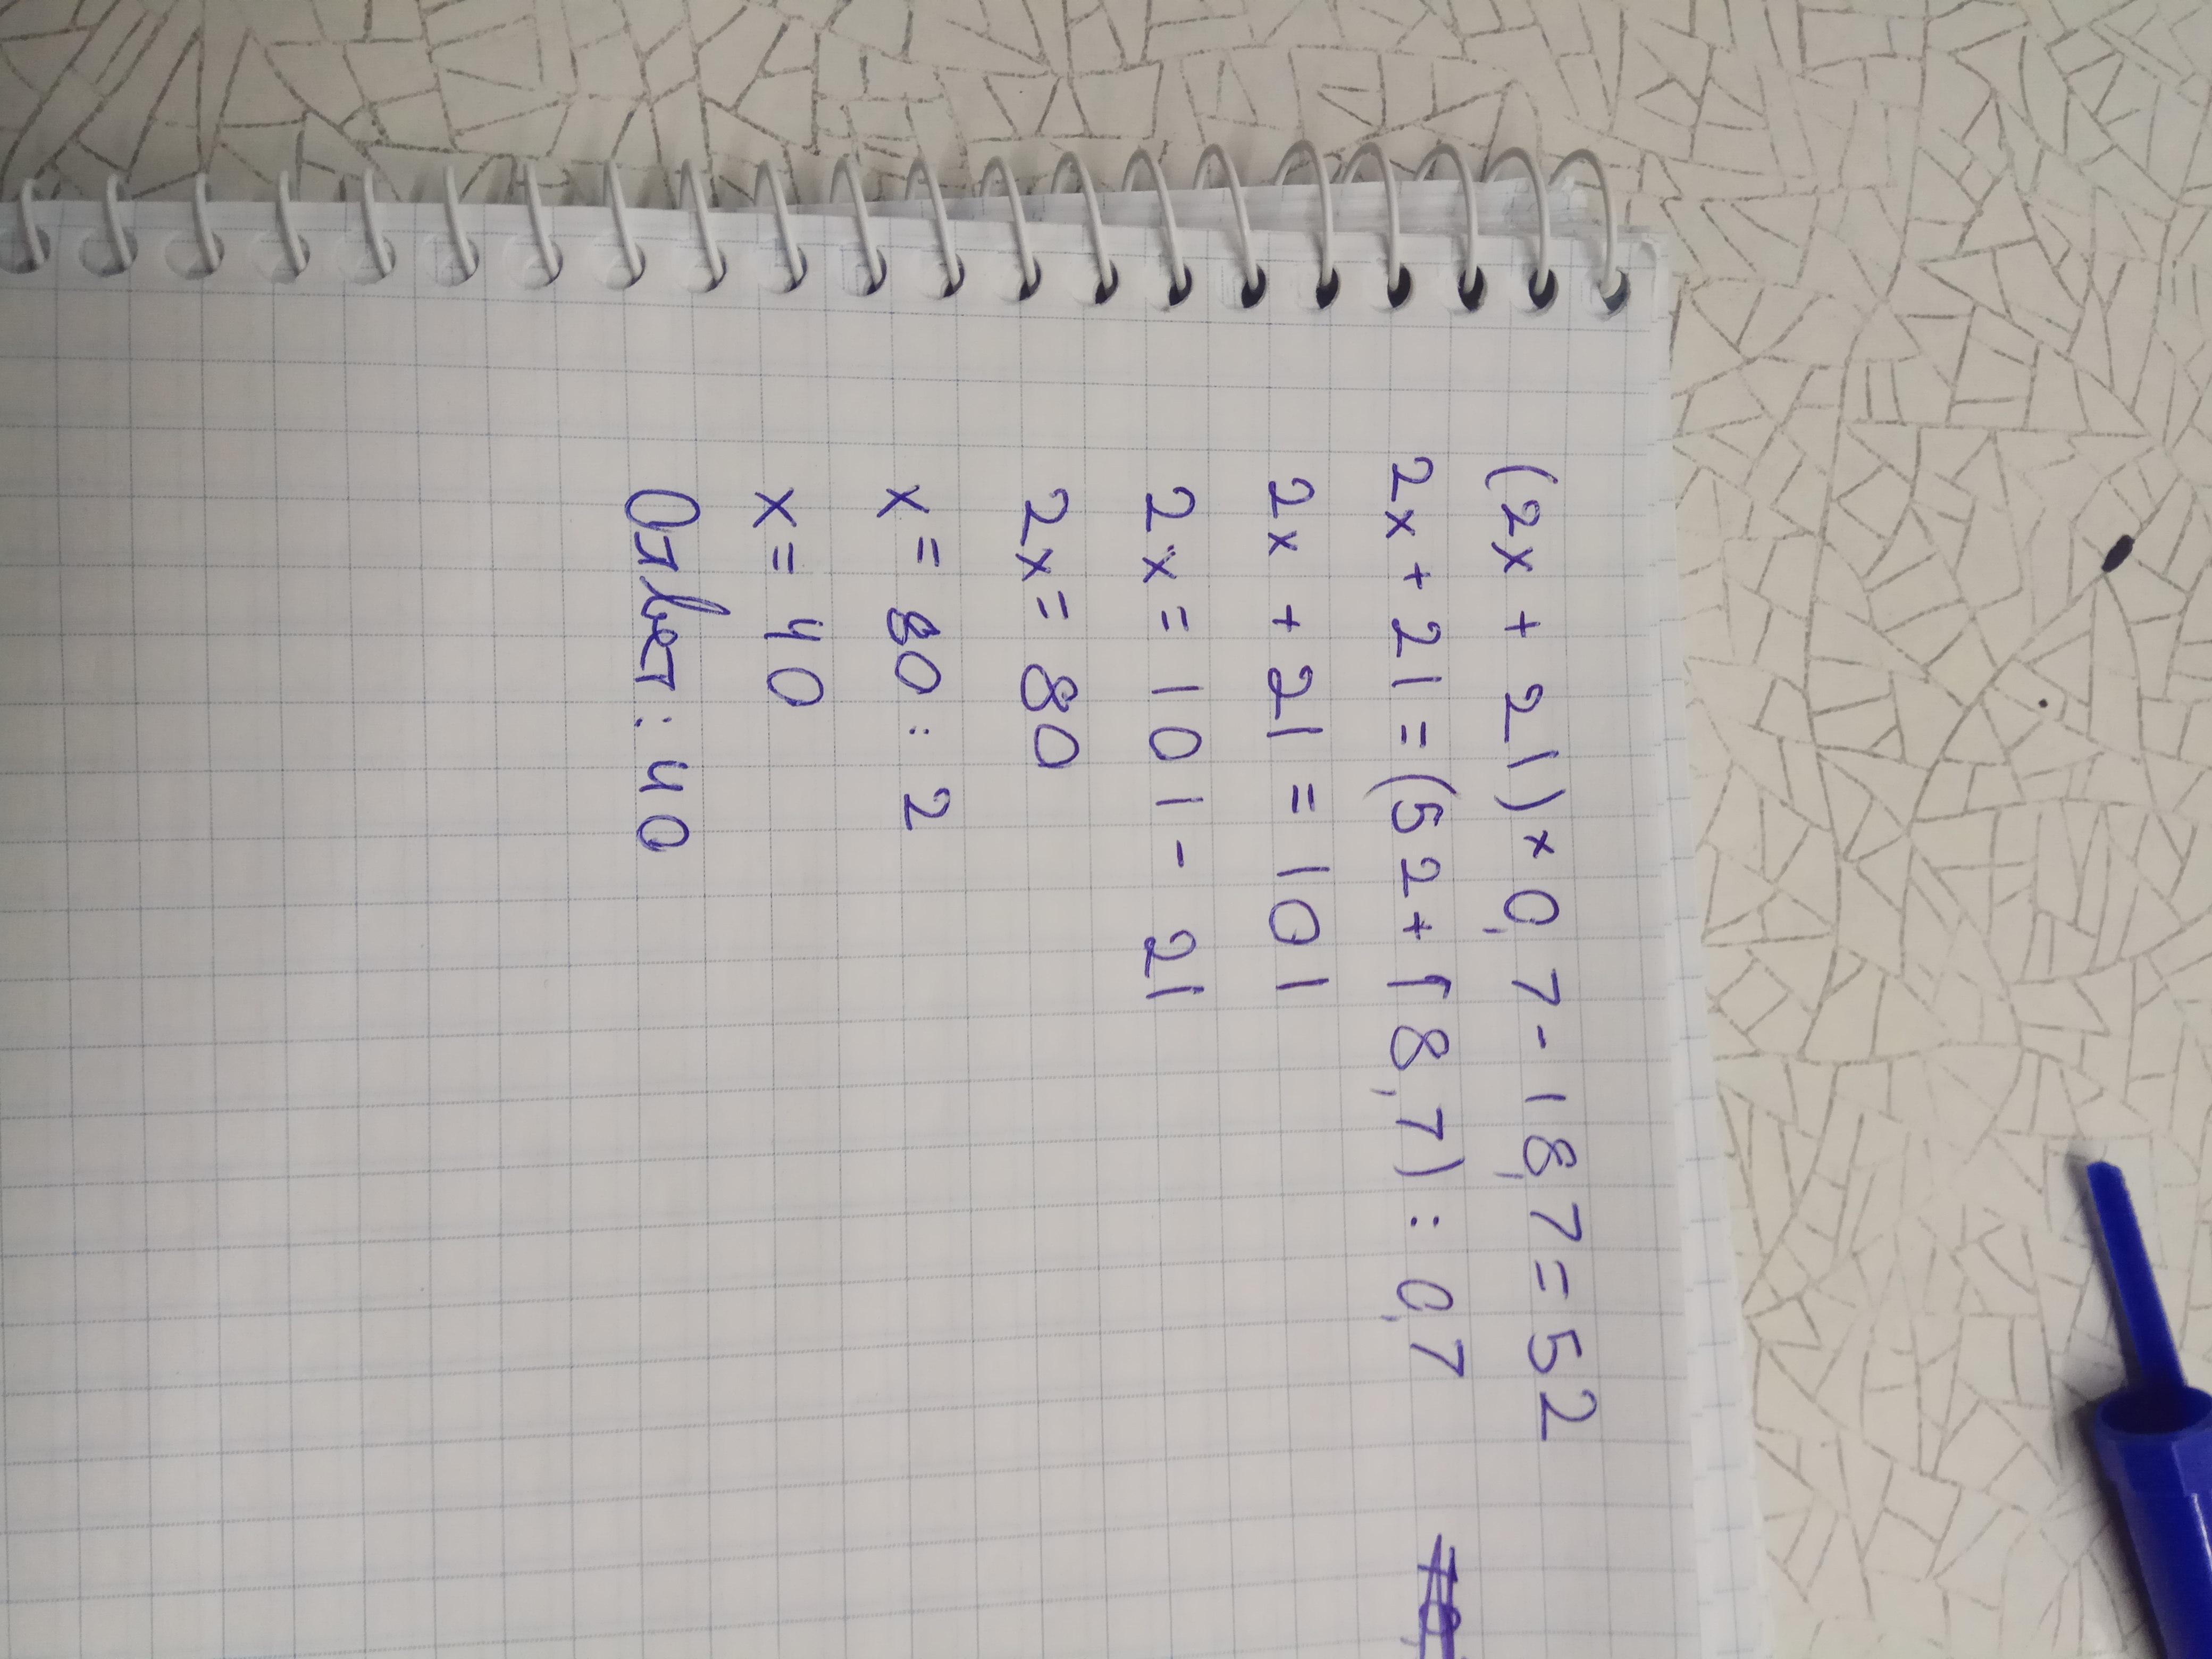 (2x + 21) × 0,7 - 18,7 = 52
2x + 21 = (52 + 18,7) : 0,7
2x + 21 = 101
2x = 101 - 21
2x = 80
x = 80 : 2
x = 40
Ответ : 40